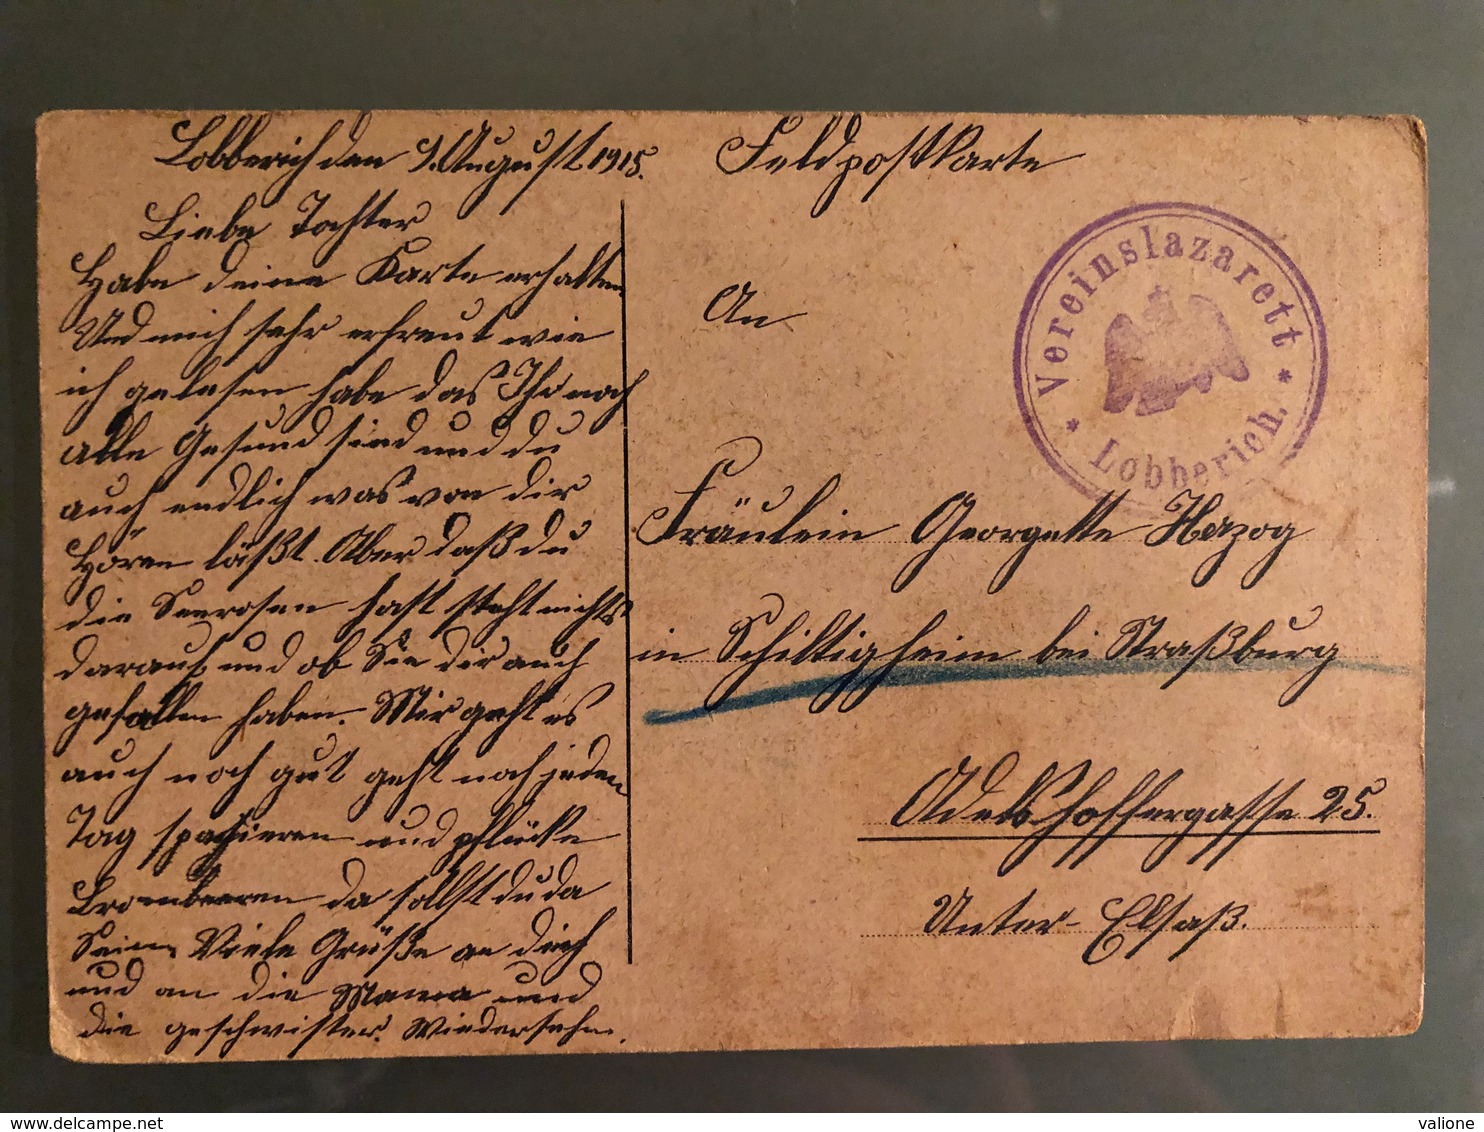 Lobberich den 9. August 1915.
Liebe Tochter
Habe deine Karte erhalten
Und mich sehr erfreut wie
ich gelesen habe das Ihr noch
alle Gesund sind und du
auch endlich was von dir
Hören läßt. Aber daß du
die Seerosen hast steht nichts
darauf, und ob Sie dir auch
gefallen haben. Mir geht es
auch noch gut geht noch jeden
Tag spazieren und pflücke
Brombeeren da sollst du da
Sein. Viele Grüße an dich
und an die Mama und
die geschwister. Wiedersehn.
Feldpostkarte
Vereinslazarett
* Lobberich. *
An
Fräulein Georgette Herzog
in Schiltigheim bei Straßburg
Adelshoffergasse 25.
Unter-Elsaß.
delcampe.net
valione